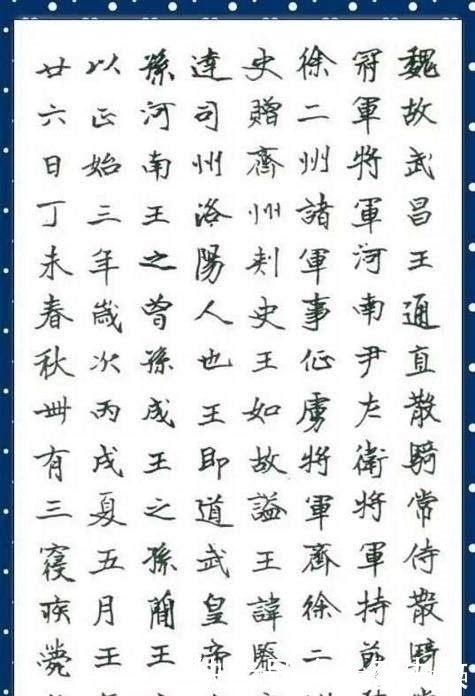 魏故武昌王通直散騎常侍散騎
冠軍將軍河南尹左衛將軍持節
徐二州諸軍事征虜將軍齊徐二
史贈齊州刺史王如故謚王諱鑒
達司州洛陽人也王即道武皇帝
孫河南王之曾孫成王之孫簡王
以正始三年歲次丙戌夏五月王
廿六日丁未春秋卌有三寢疾薨